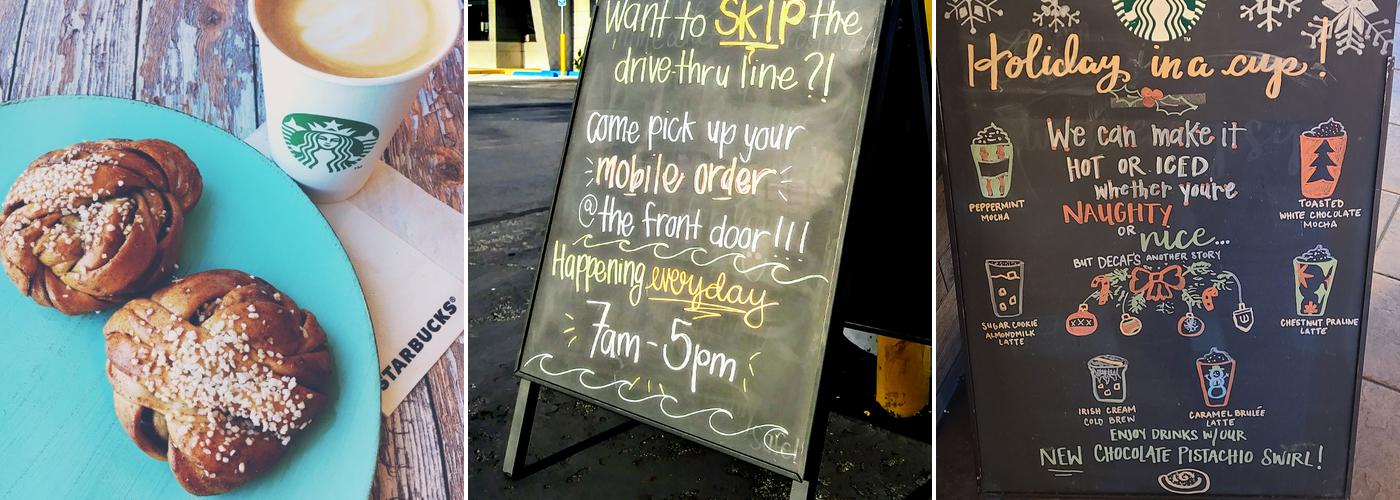 STARBUCKS®
Want to SKIP the
drive-thru line?!
come pick up your
mobile order
@the front door!!!
Happening everyday
7am - 5pm
TM
Holiday in a cup!
We can make it
HOT OR ICED
whether you're
NAUGHTY
OR nice...
BUT DECAF'S ANOTHER STORY
PEPPERMINT
MOCHA
TOASTED
WHITE CHOCOLATE
MOCHA
SUGAR COOKIE
ALMONDMILK
LATTE
CHESTNUT PRALINE
LATTE
IRISH CREAM
COLD BREW
CARAMEL BRULÉE
LATTE
ENJOY DRINKS W/OUR
NEW CHOCOLATE PISTACHIO SWIRL!